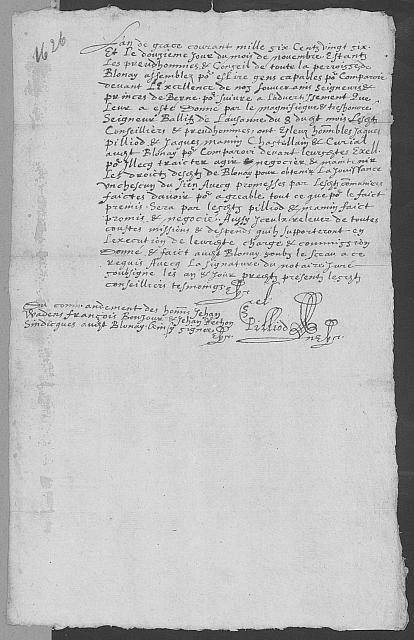 1626
Lan de grace courant mille six Centz vingt six
Et Le douziesme Jour du mois de novembre Estantz
Les preudhommes & Conseil de toute la perroisse de
Blonay assemblez po.r eslire gens capables po.r Comparoir
devant L'Excellence de nos souverains seigneurs &
princes de Berne po.r suivre a Ladvertissement que
Leur a esté donné par le magnifique & tres honoré
Seigneur Ballif de Lausanne du 8 dudt mois Lesdtz
Conseilliers & preudhommes ont esleuz honnbles Jaques
pilliod & Jaques mamin Chastellain & Curial
audt Blonay po.r Comparoir devant leursdtes Excell.
po.r Illecq traicter agir negocier & maintenir
Les droictz desdtz de Blonay pour obtenir La Jouissance
unchescun du sien Avecq promesses par Lesdtz
faictes davoir po.r agreable tout ce que po.r le faict
premis sera par lesdtz pilliod & mamin faict
promis & negocié. Aussy Iceulx relever de toutes
coustes missions & despends quilz supporteront en
Lexecution de leurdte charge & commission
Donné & faict audt Blonay soubz le sceau a ce
requis Avecq La signature du notaire Juré
soubsigné les an & Jour predtz presentz lesdtz
conseilliers tesmoings
Du commandement des honnes Jehan
françois Bonjour & Jehan
Sindicques audt Blonay signer
Pilliod